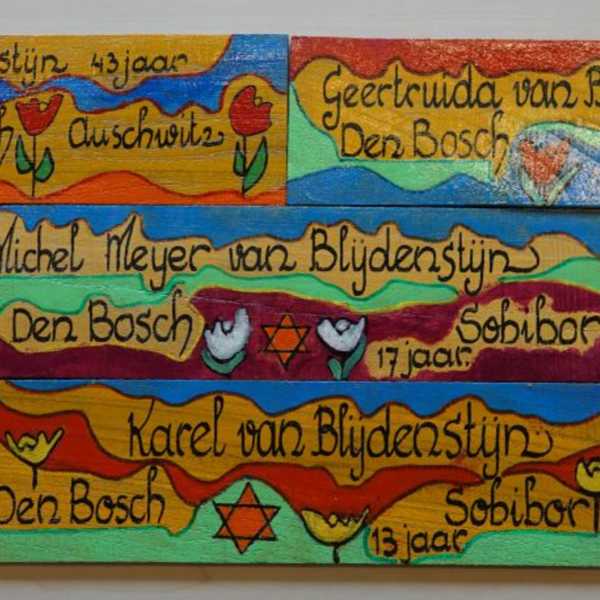 stijn 43 jaar
Auschwitz
Geertruida van B
Den Bosch
Michel Meyer van Blijdenstijn
Den Bosch Sobibor
17 jaar
Karel van Blijdenstijn
Den Bosch Sobibor
13 jaar